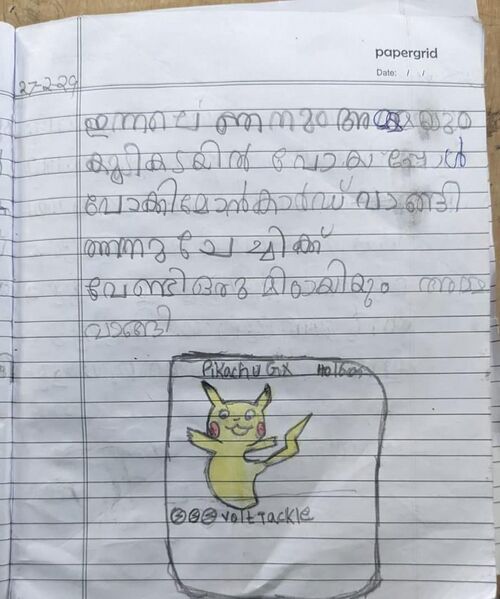 papergrid
Date: / /
27-2-29
ഇന്നലെ ഞനും അമ്മയും
കൂടി കടയിൽ പോയപ്പോൾ
പോക്കിമോൻ കാർഡ് വാങ്ങി
ഞനു ചേച്ചിക്ക്
വേണ്ടി ഒരു മിഠായിയും അമ്മ
വാങ്ങി
Pikachu GX
volt Tackle